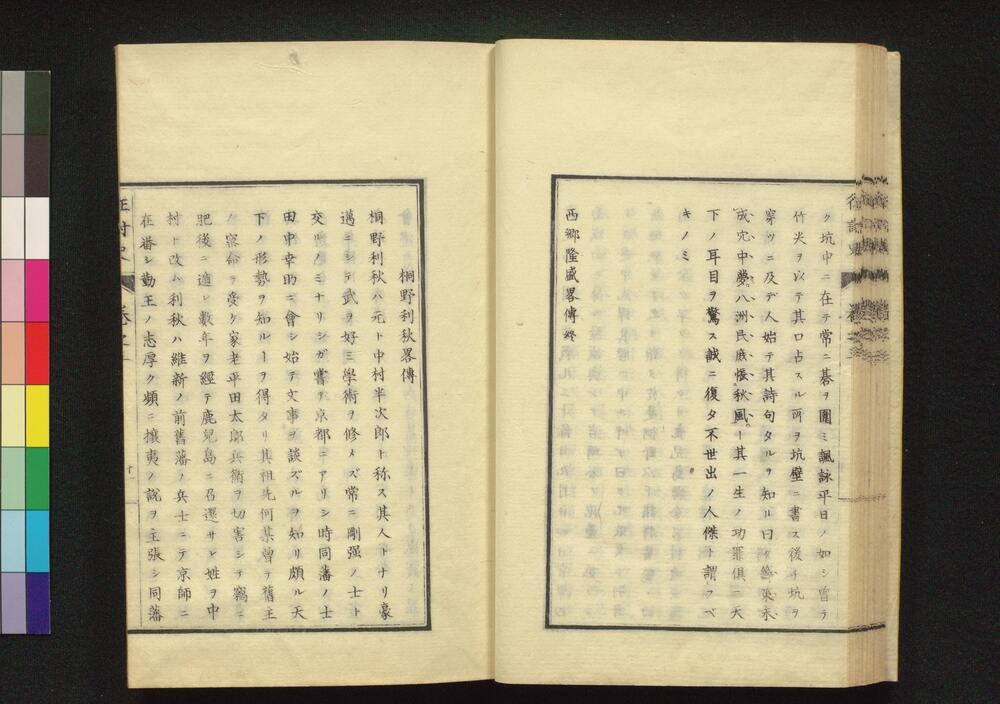 ク坑中ニ在テ常ニ碁ヲ圍ミ諷詠平日ノ如シ曾テ
竹尖ヲ以テ其口占スル所ヲ坑壁ニ書ス後チ坑ヲ
穿ツニ及デ人始テ其詩句タルヲ知ル曰ク籌策未
成究中夢。八洲民底悵秋風ト其一生ノ功罪俱ニ天
下ノ耳目ヲ驚ス誠ニ復タ不世出ノ人傑ト謂フベ
キノミ
西鄉隆盛畧傳終
桐野利秋畧傳
桐野利秋ハ元ト中村半次郎ト称ス其人トナリ豪
邁ニシテ武ヲ好ミ學術ヲ修メズ常ニ剛强ノ士ト
交ルノミナリシガ嘗テ京都ニアリシ時同藩ノ士
田中幸助ニ會シ始テ文事ヲ談ズルヲ知リ頗ル天
下ノ形勢ヲ知ルヿヲ得タリ其祖先何某曾テ舊主
ノ密命ヲ受ケ家老平田太郎兵衛ヲ切害シテ竊ニ
肥後ニ適レ數年ヲ經テ鹿兒島ニ召還サレ姓ヲ中
村ト改ム利秋ハ維新ノ前舊藩ノ兵士ニテ京師ニ
在番シ勤王ノ志厚ク頻ニ攘夷ノ說ヲ主張シ同藩